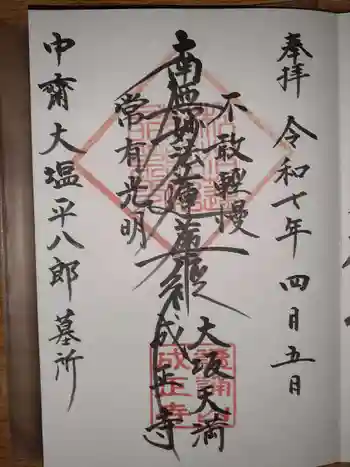 奉拝
令和七年四月五日
不敢軽慢
南無妙法蓮華経
常有光明
大坂天満
成正寺
中齋大塩平八郎墓所